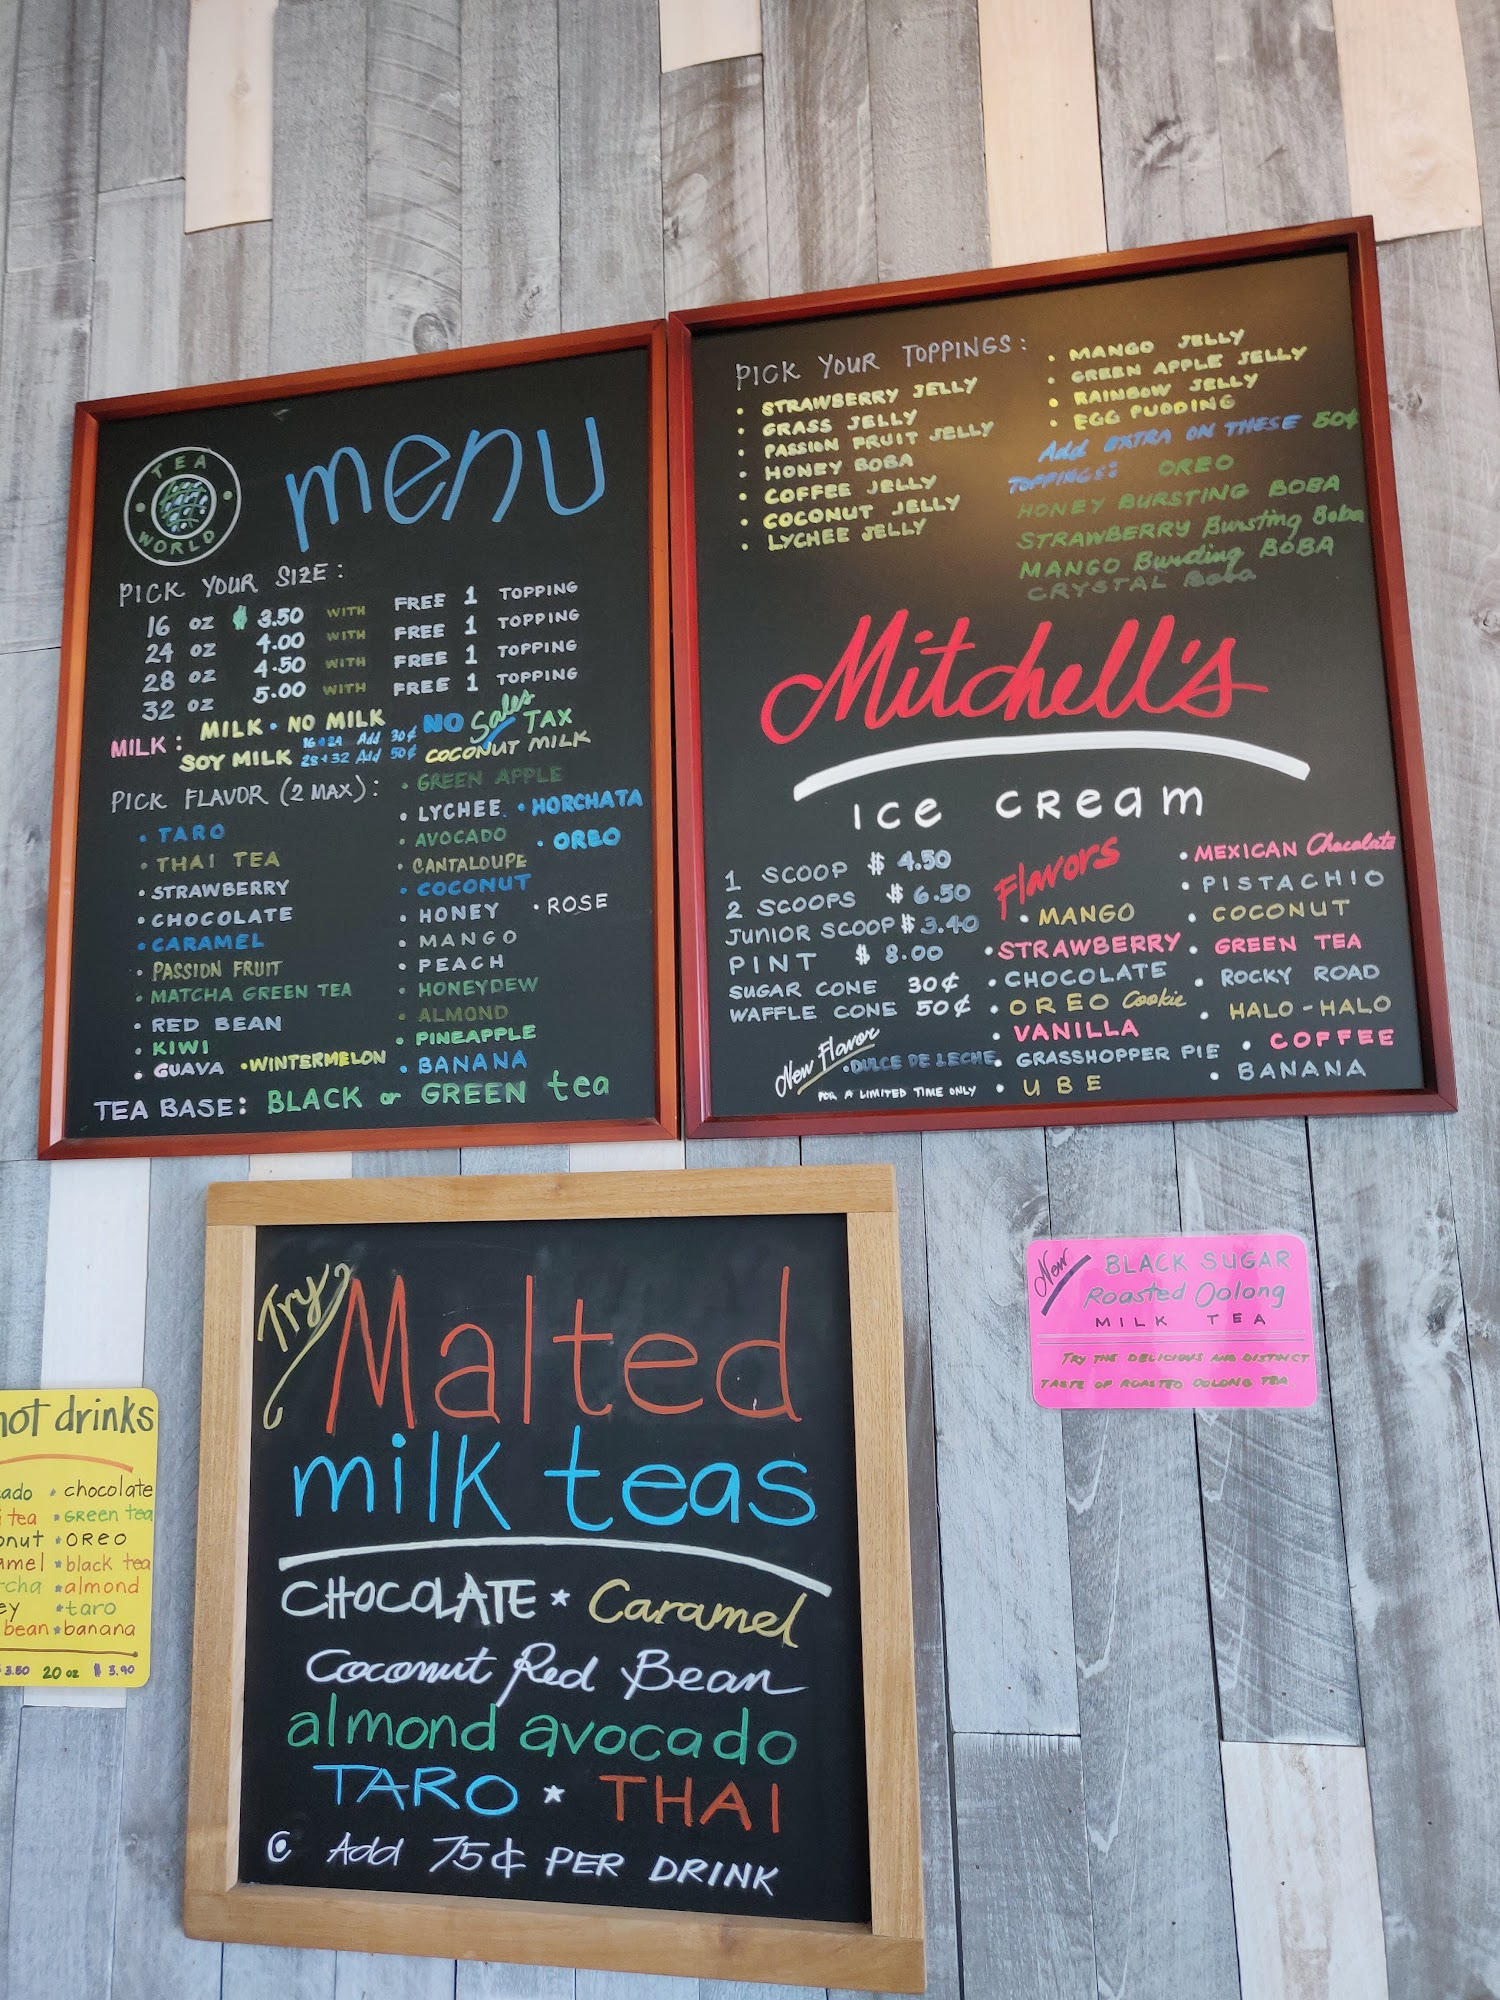 TEA WORLD
menu
PICK YOUR SIZE:
16 OZ $ 3.50 WITH FREE 1 TOPPING
24 OZ 4.00 WITH FREE 1 TOPPING
28 OZ 4.50 WITH FREE 1 TOPPING
32 OZ 5.00 WITH FREE 1 TOPPING
MILK: MILK • NO MILK NO Sales TAX
SOY MILK 16 & 24 Add 30¢ COCONUT MILK
28 & 32 Add 50¢
PICK FLAVOR (2 MAX):
• TARO
• THAI TEA
• STRAWBERRY
• CHOCOLATE
• CARAMEL
• PASSION FRUIT
• MATCHA GREEN TEA
• RED BEAN
• KIWI
• GUAVA • WINTERMELON
• GREEN APPLE
• LYCHEE • HORCHATA
• AVOCADO • OREO
• CANTALOUPE
• COCONUT
• HONEY • ROSE
• MANGO
• PEACH
• HONEYDEW
• ALMOND
• PINEAPPLE
• BANANA
TEA BASE: BLACK or GREEN tea
PICK YOUR TOPPINGS:
• STRAWBERRY JELLY
• GRASS JELLY
• PASSION FRUIT JELLY
• HONEY BOBA
• COFFEE JELLY
• COCONUT JELLY
• LYCHEE JELLY
• MANGO JELLY
• GREEN APPLE JELLY
• RAINBOW JELLY
• EGG PUDDING
Add EXTRA ON THESE 50¢
TOPPINGS: OREO
HONEY BURSTING BOBA
STRAWBERRY Bursting Boba
MANGO Bursting BOBA
CRYSTAL Boba
Mitchell's
ICE CREAM
1 SCOOP $ 4.50
2 SCOOPS $ 6.50
JUNIOR SCOOP $ 3.40
PINT $ 8.00
SUGAR CONE 30¢
WAFFLE CONE 50¢
New Flavor
• DULCE DE LECHE
FOR A LIMITED TIME ONLY
Flavors
• MANGO
• STRAWBERRY
• CHOCOLATE
• OREO Cookie
• VANILLA
• GRASSHOPPER PIE
• UBE
• MEXICAN Chocolate
• PISTACHIO
• COCONUT
• GREEN TEA
• ROCKY ROAD
• HALO-HALO
• COFFEE
• BANANA
Try
Malted
milk teas
CHOCOLATE * Caramel
Coconut Red Bean
almond avocado
TARO * THAI
Add 75¢ PER DRINK
New BLACK SUGAR
Roasted Oolong
MILK TEA
TRY THE DELICIOUS AND DISTINCT
TASTE OF ROASTED OOLONG TEA.
hot drinks
ado • chocolate
tea • GREEN tea
onut • OREO
amel • black tea
cha • almond
ey • taro
bean • banana
3.50 20 oz $ 3.90